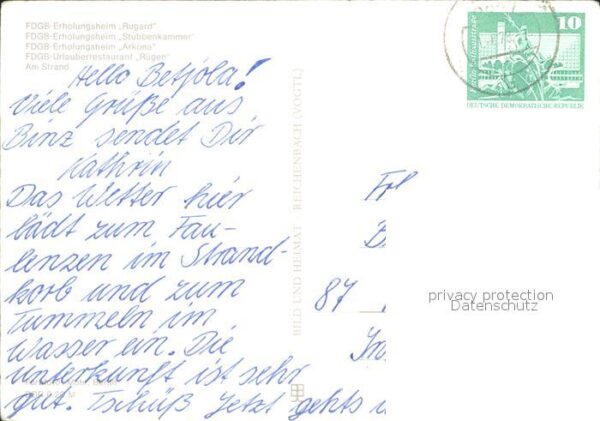 FDGB-Erholungsheim „Rugard"
FDGB-Erholungsheim „Stubbenkammer"
FDGB-Erholungsheim „Arkona"
FDGB-Urlauberrestaurant „Rügen"
Am Strand
Hello Betjola!
Viele Grüße aus
Binz sendet Dir
Kathrin
Das Wetter hier
lädt zum Fau-
lenzen im Strand-
korb und zum
Tummeln im
Wasser ein. Die
Unterkunft ist sehr
gut. Tschüß Jetzt gehts
BILD UND HEIMAT REICHENBACH (VOGTL)
10
DEUTSCHE DEMOKRATISCHE REPUBLIK
Frl
B
87
privacy protection
Datenschutz